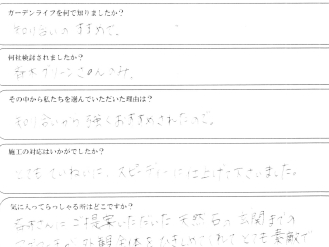 ガーデンライフを何で知りましたか?
知り合いのすすめで。
何社検討されましたか?
グリーンさんのみ。
その中から私たちを選んでいただいた理由は?
知り合いから強くおすすめされたので。
施工の対応はいかがでしたか?
とてもていねいに、スピーディーに仕上げて下さいました。
気に入ってらっしゃる所はどこですか?
石木さんにご提案いただいた天然石の玄関までの
お庭全体をひきしめてくれてとても素敵で